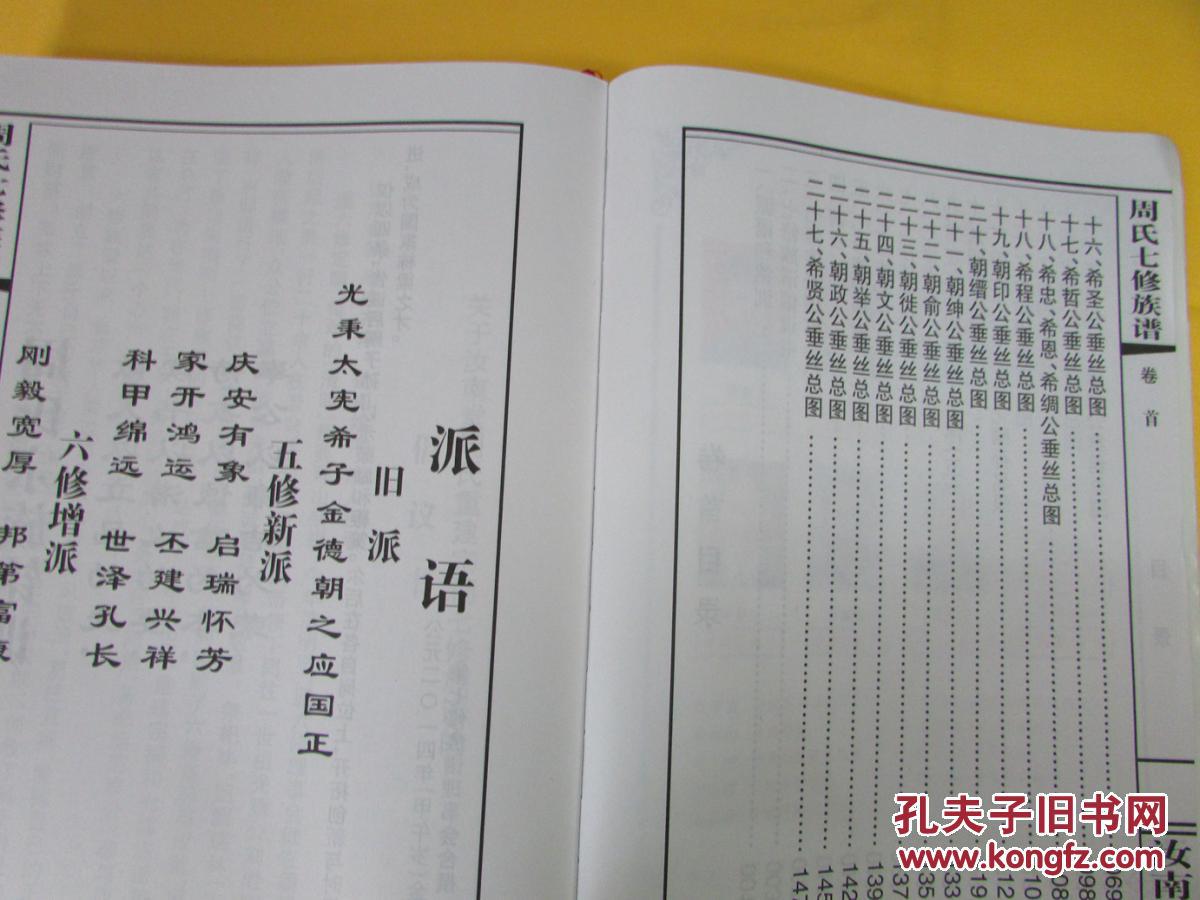 周氏七修族谱
卷首
目录
汝南
十六、希圣公垂丝总图
十七、希哲公垂丝总图
十八、希忠、希恩、希绸公垂丝总图
十八、希程公垂丝总图
十九、朝印公垂丝总图
二十、朝缙公垂丝总图
二十一、朝绅公垂丝总图
二十二、朝俞公垂丝总图
二十三、朝徙公垂丝总图
二十四、朝文公垂丝总图
二十五、朝举公垂丝总图
二十六、朝政公垂丝总图
二十七、希贤公垂丝总图
派语
旧派
光秉太宪希子金德朝之应国正
五修新派
庆安有象 启瑞怀芳
家开鸿运 丕建兴祥
科甲绵远 世泽孔长
六修增派
刚毅宽厚 邦第富
孔夫子旧书网
www.kongfz.com